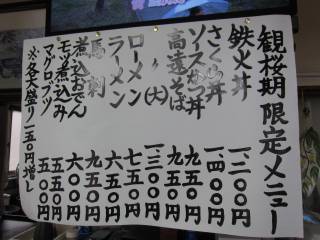 観桜期 限定メニュー
鉄火丼 一、二〇〇円
さくら丼 一、四〇〇円
ソースかつ丼 九五〇円
高遠そば 九五〇円
〃(大) 一、三〇〇円
ローメン 七五〇円
ラーメン 六五〇円
馬刺 九五〇円
煮込おでん 六〇〇円
モツ煮込み 五五〇円
マグロブツ 五〇〇円
※各大盛り一五〇円増し